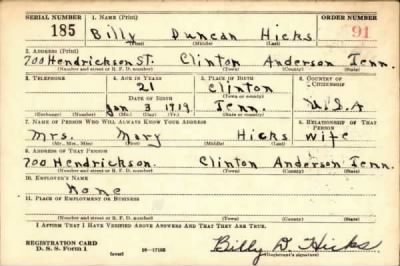 SERIAL NUMBER 1. NAME (Print) ORDER NUMBER
185 Billy Duncan Hicks 91
(First) (Middle) (Last)
2. ADDRESS (Print)
700 Hendrickson St. Clinton Anderson Tenn.
(Number and street or R. F. D. number) (Town) (County) (State)
3. TELEPHONE 4. AGE IN YEARS 5. PLACE OF BIRTH 6. COUNTRY OF CITIZENSHIP
21 Clinton
DATE OF BIRTH (Town or county)
Jan 3 1919 Tenn. U.S.A
(Exchange) (Number) (Mo.) (Day) (Yr.) (State or country)
7. NAME OF PERSON WHO WILL ALWAYS KNOW YOUR ADDRESS 8. RELATIONSHIP OF THAT PERSON
Mrs. Mary Hicks Wife
(Mr., Mrs., Miss) (First) (Middle) (Last)
9. ADDRESS OF THAT PERSON
700 Hendrickson. Clinton Anderson Tenn.
(Number and street or R. F. D. number) (Town) (County) (State)
10. EMPLOYER'S NAME
None
11. PLACE OF EMPLOYMENT OR BUSINESS
(Number and street or R. F. D. number) (Town) (County) (State)
I AFFIRM THAT I HAVE VERIFIED ABOVE ANSWERS AND THAT THEY ARE TRUE.
REGISTRATION CARD
D. S. S. Form 1 (over) Billy D. Hicks
(Registrant's signature)